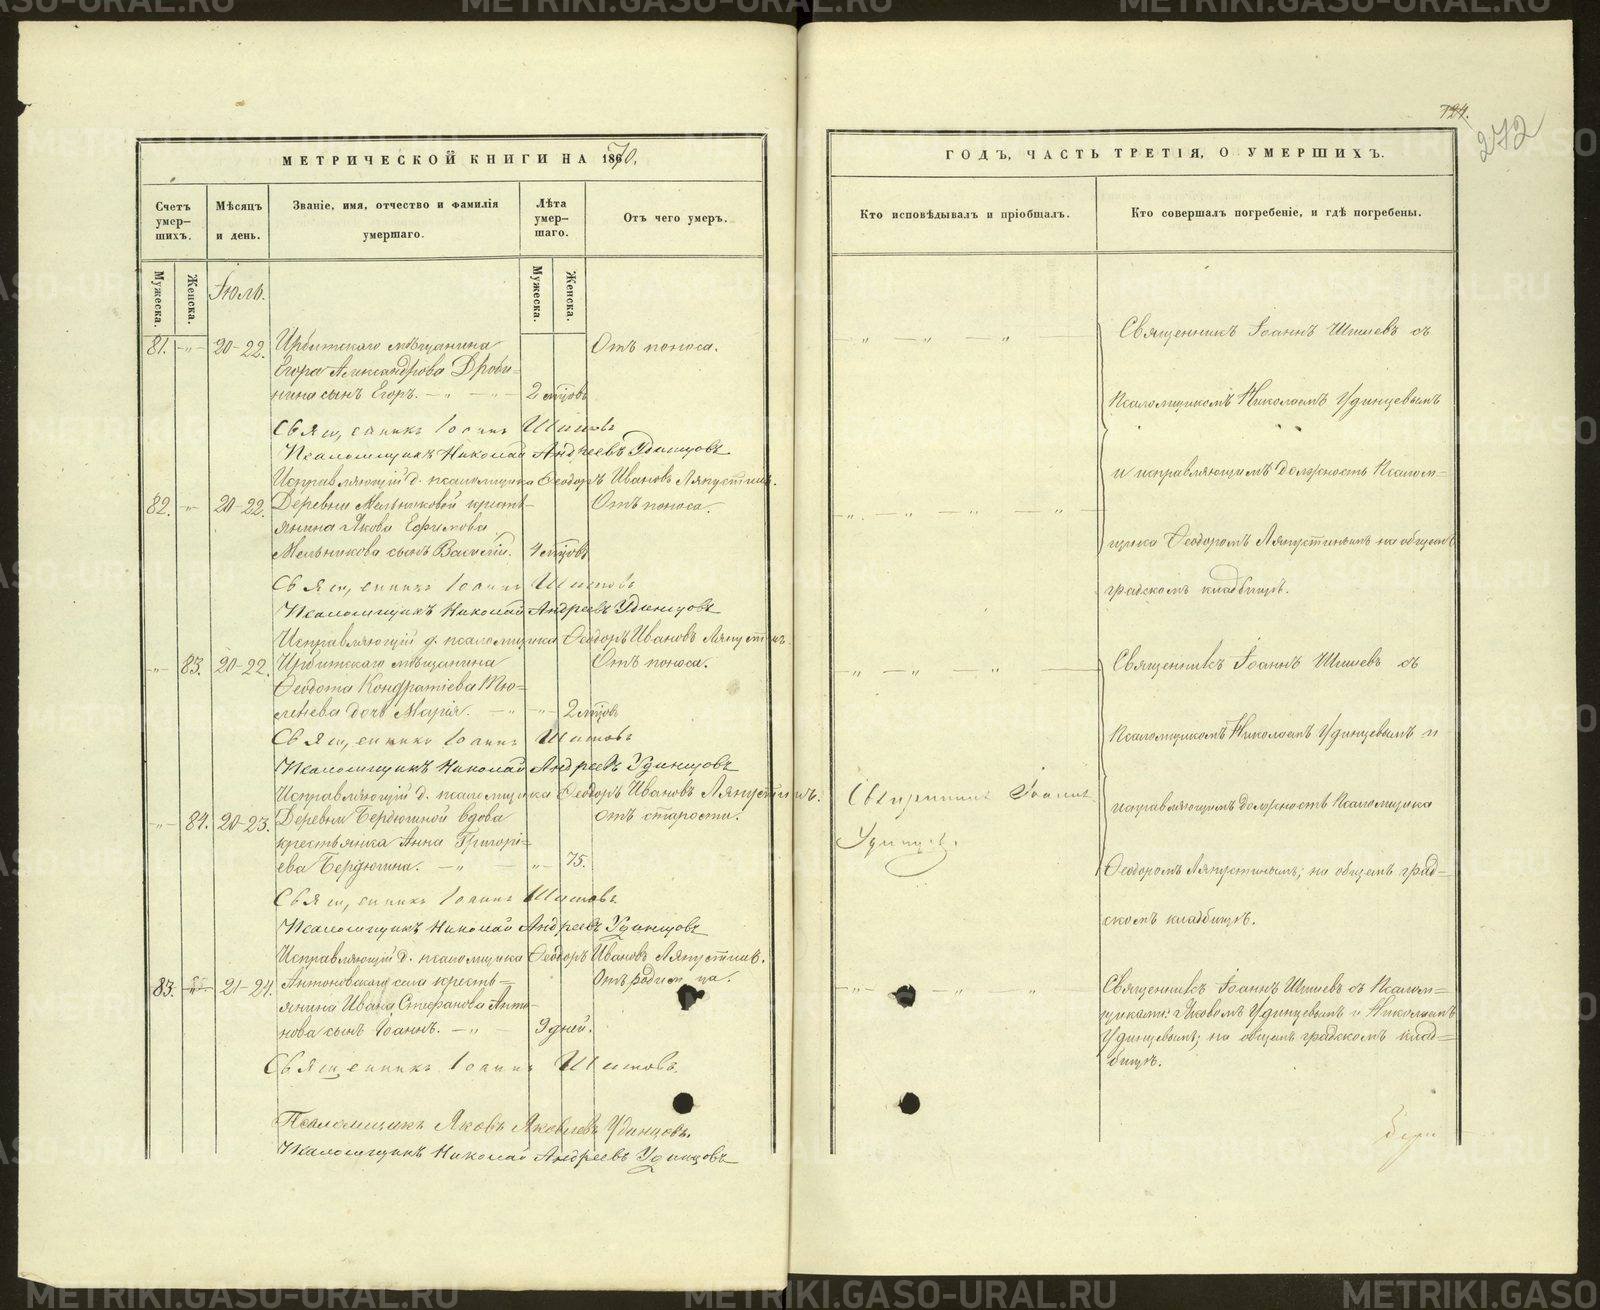 МЕТРИЧЕСКОЙ КНИГИ НА 1870,
Счетъ умер- шихъ.
Мѣсяцъ и день.
Званіе, имя, отчество и фамилія умершаго.
Лѣта умер- шаго.
Отъ чего умеръ.
Мужеска.
Женска.
Іюль.
Мужеска.
Женска.
81. -"- 20-22. Ирбитскаго мѣщанина Отъ поноса.
Егора Александрова Дроби-
нина сынъ Егоръ. -"- 2 мцовъ
Священникъ Іоаннъ Шишевъ
Псаломщикъ Николай Андреевъ Удинцовъ
Исправляющій д. псаломщика Ѳеодоръ Ивановъ Ляпустинъ.
82. -"- 20-22. Деревни Мельниковой кресть- Отъ поноса.
янина Якова Ефимова
Мельникова сынъ Василій. 4 мцовъ
Священникъ Іоаннъ Шишевъ
Псаломщикъ Николай Андреевъ Удинцовъ
Исправляющій д. псаломщика Ѳеодоръ Ивановъ Ляпустинъ
-"- 83. 20-22. Ирбитскаго мѣщанина Отъ поноса.
Ѳеодота Кондратіева Тю-
ленева дочь Марія. -"- 2 мцовъ
Священникъ Іоаннъ Шишевъ
Псаломщикъ Николай Андреевъ Удинцовъ
Исправляющій д. псаломщика Ѳеодоръ Ивановъ Ляпустинъ.
-"- 84. 20-23. Деревни Бердюгиной вдова Отъ старости.
крестьянка Анна Григорі-
ева Бердюгина. -"- 75.
Священникъ Іоаннъ Шишевъ
Псаломщикъ Николай Андреевъ Удинцовъ
Исправляющій д. псаломщика Ѳеодоръ Ивановъ Ляпустинъ.
83. 21-24. Антоновскаго села кресть- Отъ родимца.
янина Ивана Стефанова Анто-
нова сынъ Іоаннъ. -"- 9 дней.
Священникъ Іоаннъ Шишевъ.
Псаломщикъ Яковъ Яковлевъ Удинцовъ.
Псаломщикъ Николай Андреевъ Удинцовъ
724.
272
ГОДЪ, ЧАСТЬ ТРЕТІЯ, О УМЕРШИХЪ.
Кто исповѣдывалъ и пріобщалъ.
Кто совершалъ погребеніе, и гдѣ погребены.
Священникъ Іоаннъ Шишевъ съ
Псаломщикомъ Николаемъ Удинцевымъ
и исправляющимъ должность Псалом-
щика Ѳеодоромъ Ляпустинымъ на общемъ
градскомъ кладбищѣ.
Священникъ Іоаннъ Шишевъ съ
Псаломщикомъ Николаемъ Удинцевымъ и
исправляющимъ должность Псаломщика
Ѳеодоромъ Ляпустинымъ; на общемъ град-
скомъ кладбищѣ.
Священникъ Іоаннъ
Удинцевъ.
Священникъ Іоаннъ Шишевъ съ Псалом-
щиками: Яковомъ Удинцевымъ и Николаемъ
Удинцевымъ; на общемъ градскомъ клад-
бищѣ.
METRIKI.GASO-URAL.RU